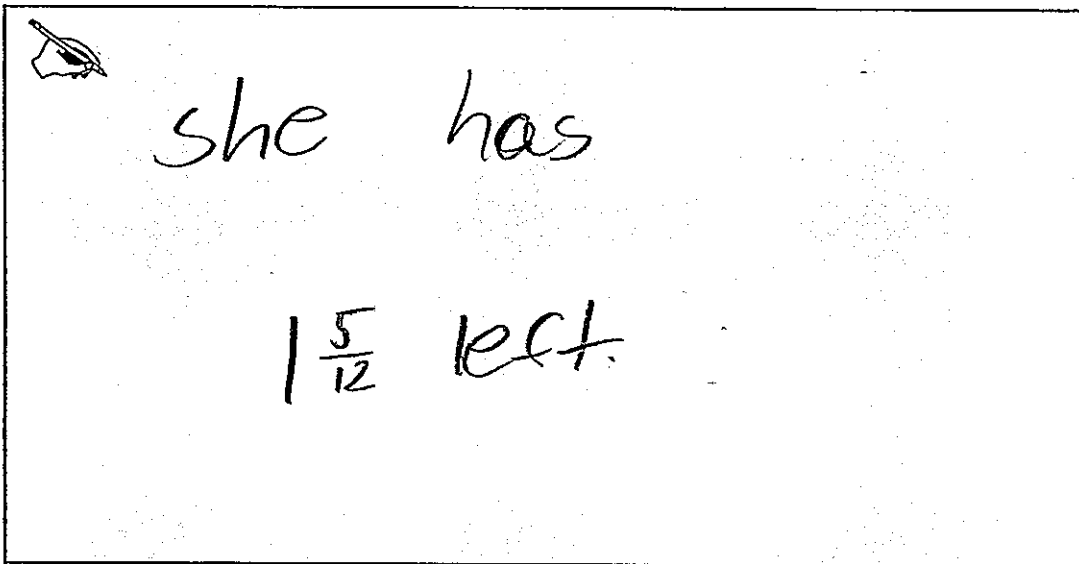 she has
1 5/12 left.